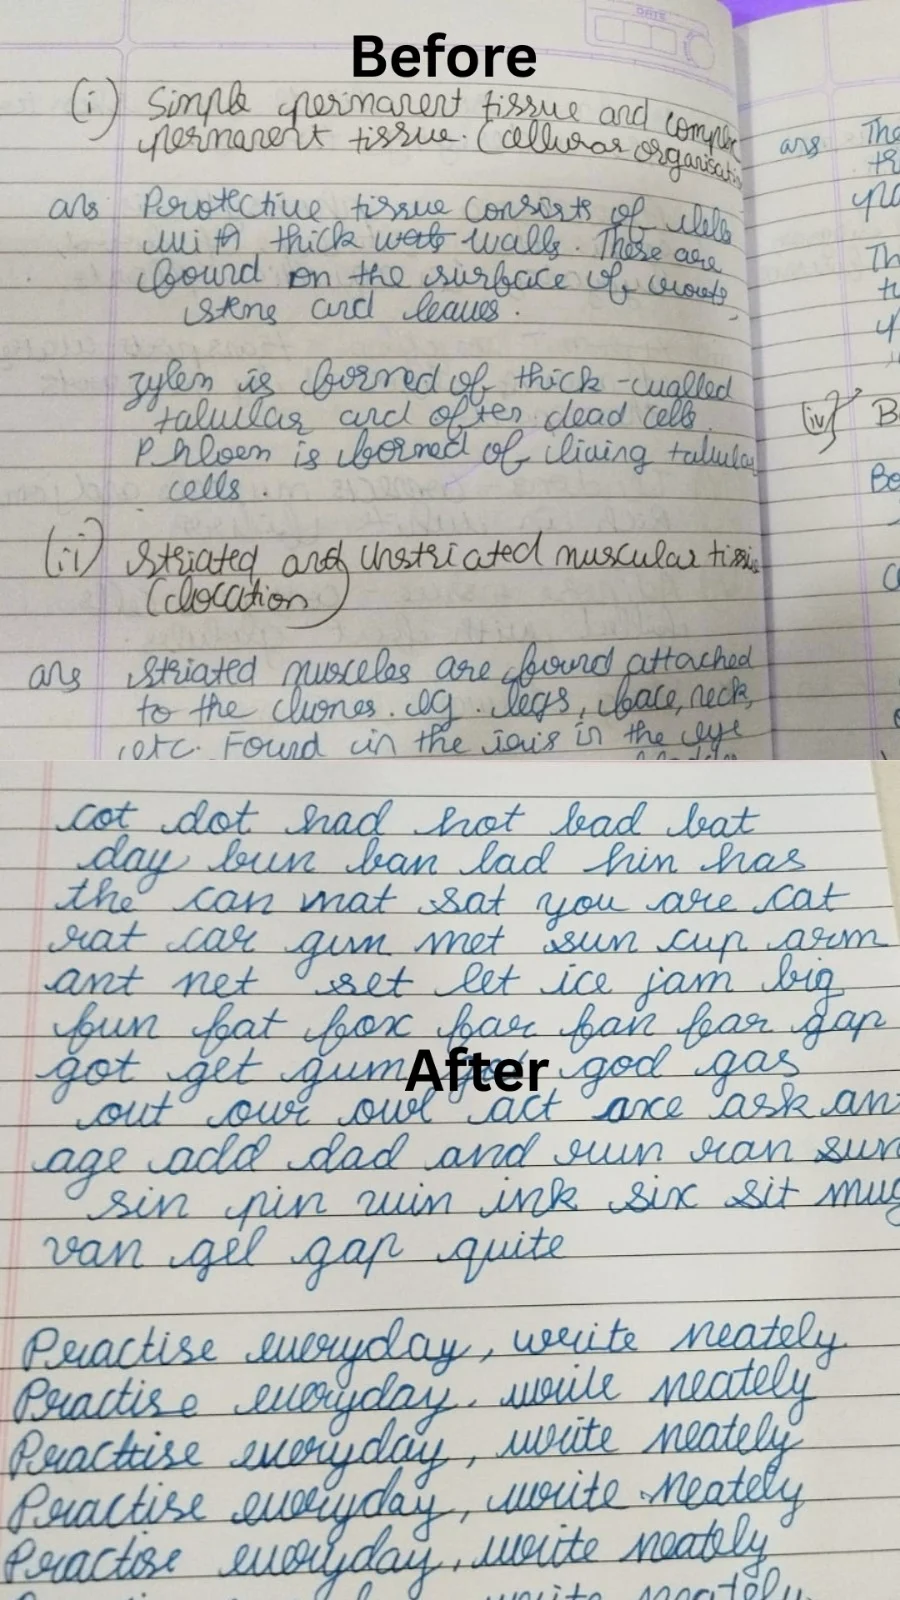 DATE
Before
(i) Simple permanent tissue and complex
permanent tissue. (Cellular organisati
ans Protective tissue consists of cells
with thick walls. These are
found on the surface of roots,
stems and leaves.
Xylem is formed of thick-walled
tubular and often dead cells.
Phloem is formed of living tubular
cells.
(ii) Striated and Unstriated muscular tissue
(location)
ans Striated muscles are found attached
to the bones. eg. legs, face, neck,
etc. Found in the iris in the eye
ans The
Th
(iv) B
Be
cot dot had hot bad bat
day bun ban lad hin has
the can mat sat you are cat
rat car gum met sun cup arm
ant net set let ice jam big
fun fat fox far fan fear gap
got get gum god gas
After
out our owl act axe ask an
age add dad and run ran sun
sin pin win ink six sit mug
van gel gap quite
Practise everyday, write neately
Practise everyday. write neately
Practise everyday, write neately
Practise everyday, write neately
Practise everyday, write neately
write neately